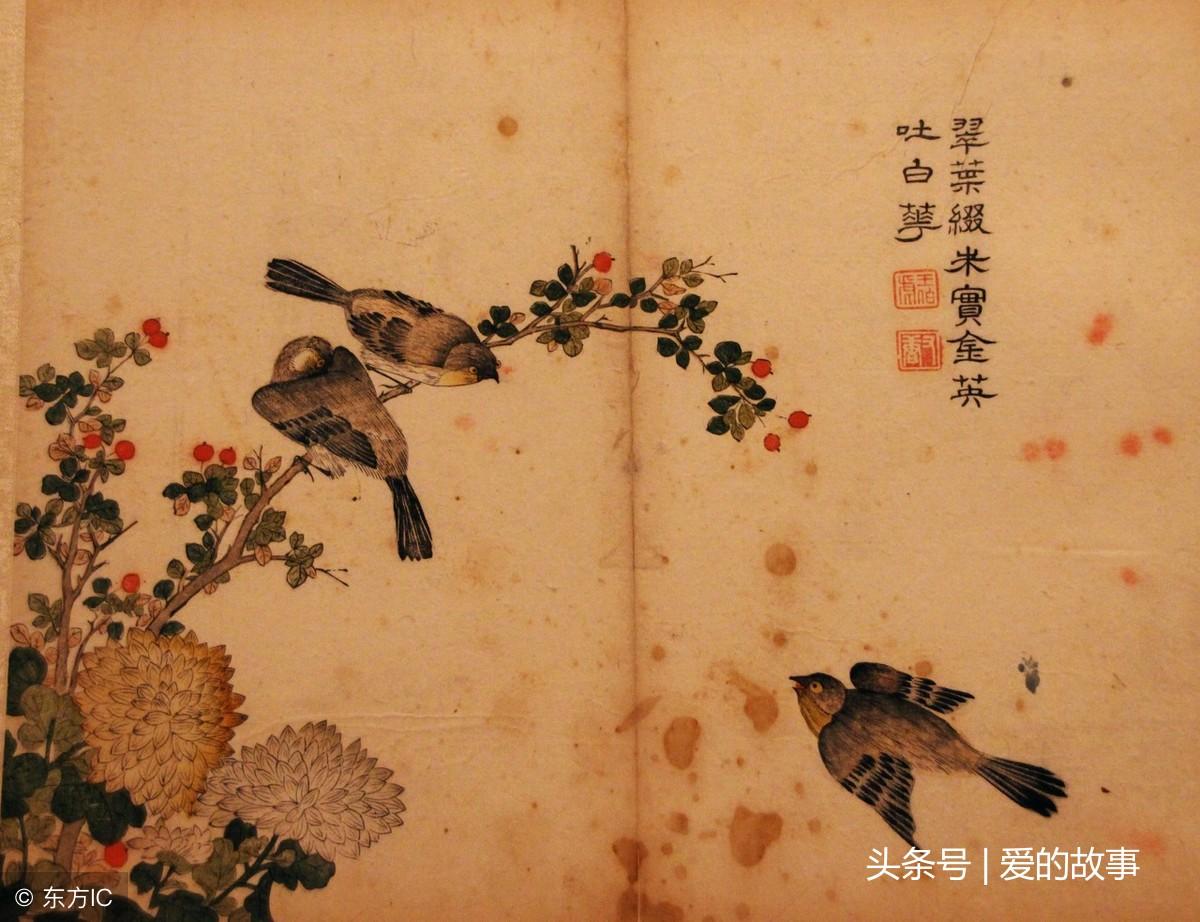 翠葉綴朱實金英
吐白華
© 东方IC
头条号 | 爱的故事